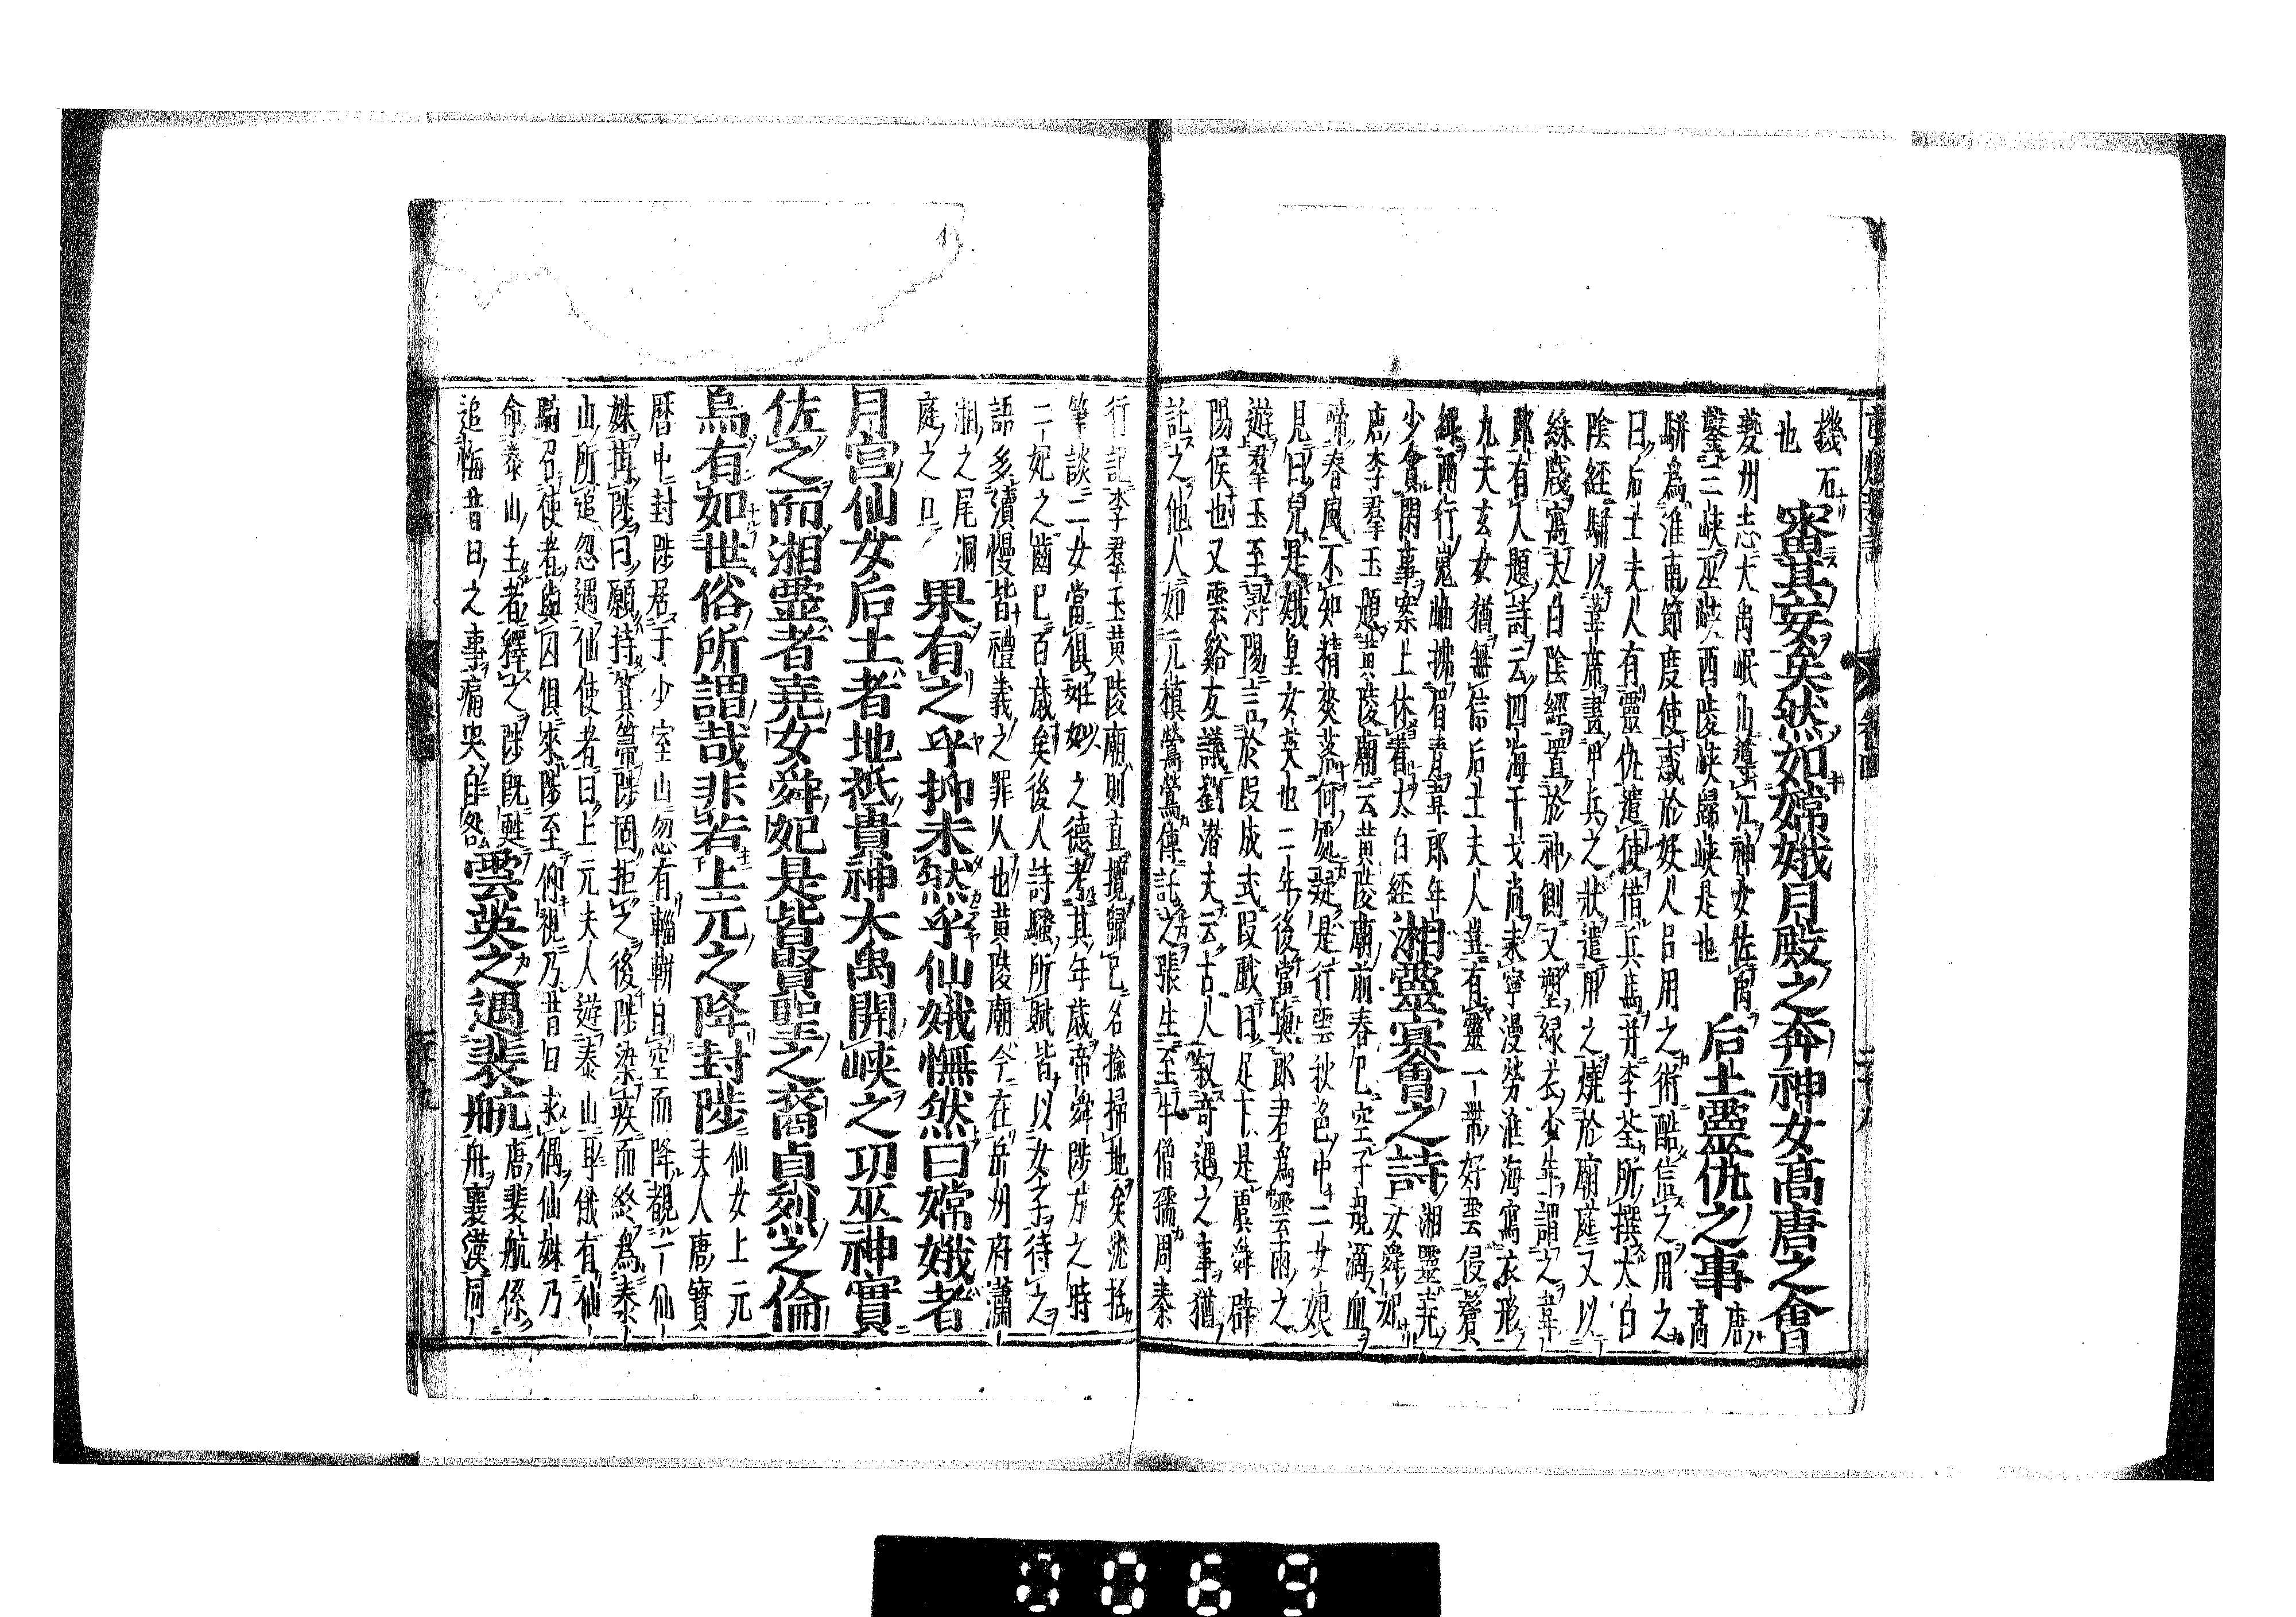 機石
也 審其妄矣然如嫦娥月殿之奔神女高唐之會
夔州志大禹岷山導江神女佐禹
鑿三峽巫峽西陵峽歸峽是也 后土靈仇之事 唐高
駢為淮南節度使惑於妖人呂用之術酷信之用之
曰后土夫人有靈仇遣使借兵馬并李荃所撰太白
陰經騈以葦席畫甲兵之狀遣用之燒於廟庭又以
綵牋寫太白陰經置於神側又塑緑衣少年謂之韋
郎有人題詩云四海干戈尚未寧漫勞淮海寫衣形
九天玄女猶無信后土夫人豈有靈一帶好雲侵鬢
綠兩行嵬岫拂眉青韋郎年
少貪閑事案上休看太白經 湘靈冥會之詩 湘靈堯女舜妃
唐李羣玉題黄陵廟云黄陵廟前春已空子規滴血
啼春風不知精爽落何處疑是行雲秋色中二女娘
見曰兒是娥皇女英也二年後當與郎君為雲雨之
遊羣玉至潯陽言於段成式段戲曰足下是虞舜辟
陽侯也又雲谿友議劉潜夫云古人叙竒遇之事猶
託之他人如元稹鶯鶯傳託之張生至牛僧孺周秦
行記李羣玉黄陵廟則直攬歸己名撿掃地矣沈括
筆談二女當俱姙姒之德考其年歳帝舜陟方之時
二妃之齒已百歳矣後人詩騷所賦皆以女子待之
語多瀆慢皆禮義之罪人也黄陵廟今在岳州府瀟
湘之尾洞
庭之口 果有之乎抑未然乎仙娥憮然曰嫦娥者
月宮仙女后土者地祇貴神大禹開峽之功巫神實
佐之而湘靈者堯女舜妃是皆賢聖之裔貞烈之倫
烏有如世俗所謂哉非若上元之降封陟 仙女上元夫人唐寳
暦中封陟居于少室山忽有輜軿自空而降觀一仙
姝揖陟曰願持箕箒陟固拒之後陟染疾而終為泰
山所追忽遇仙使者曰上元夫人遊泰山耳俄有仙
騎召使者與囚俱來陟至仰視乃昔日求偶仙姝乃
命泰山主者釋之陟既甦
追悔昔日之事痛哭自咎 雲英之遇裴航 唐裴航係舟襄漢同